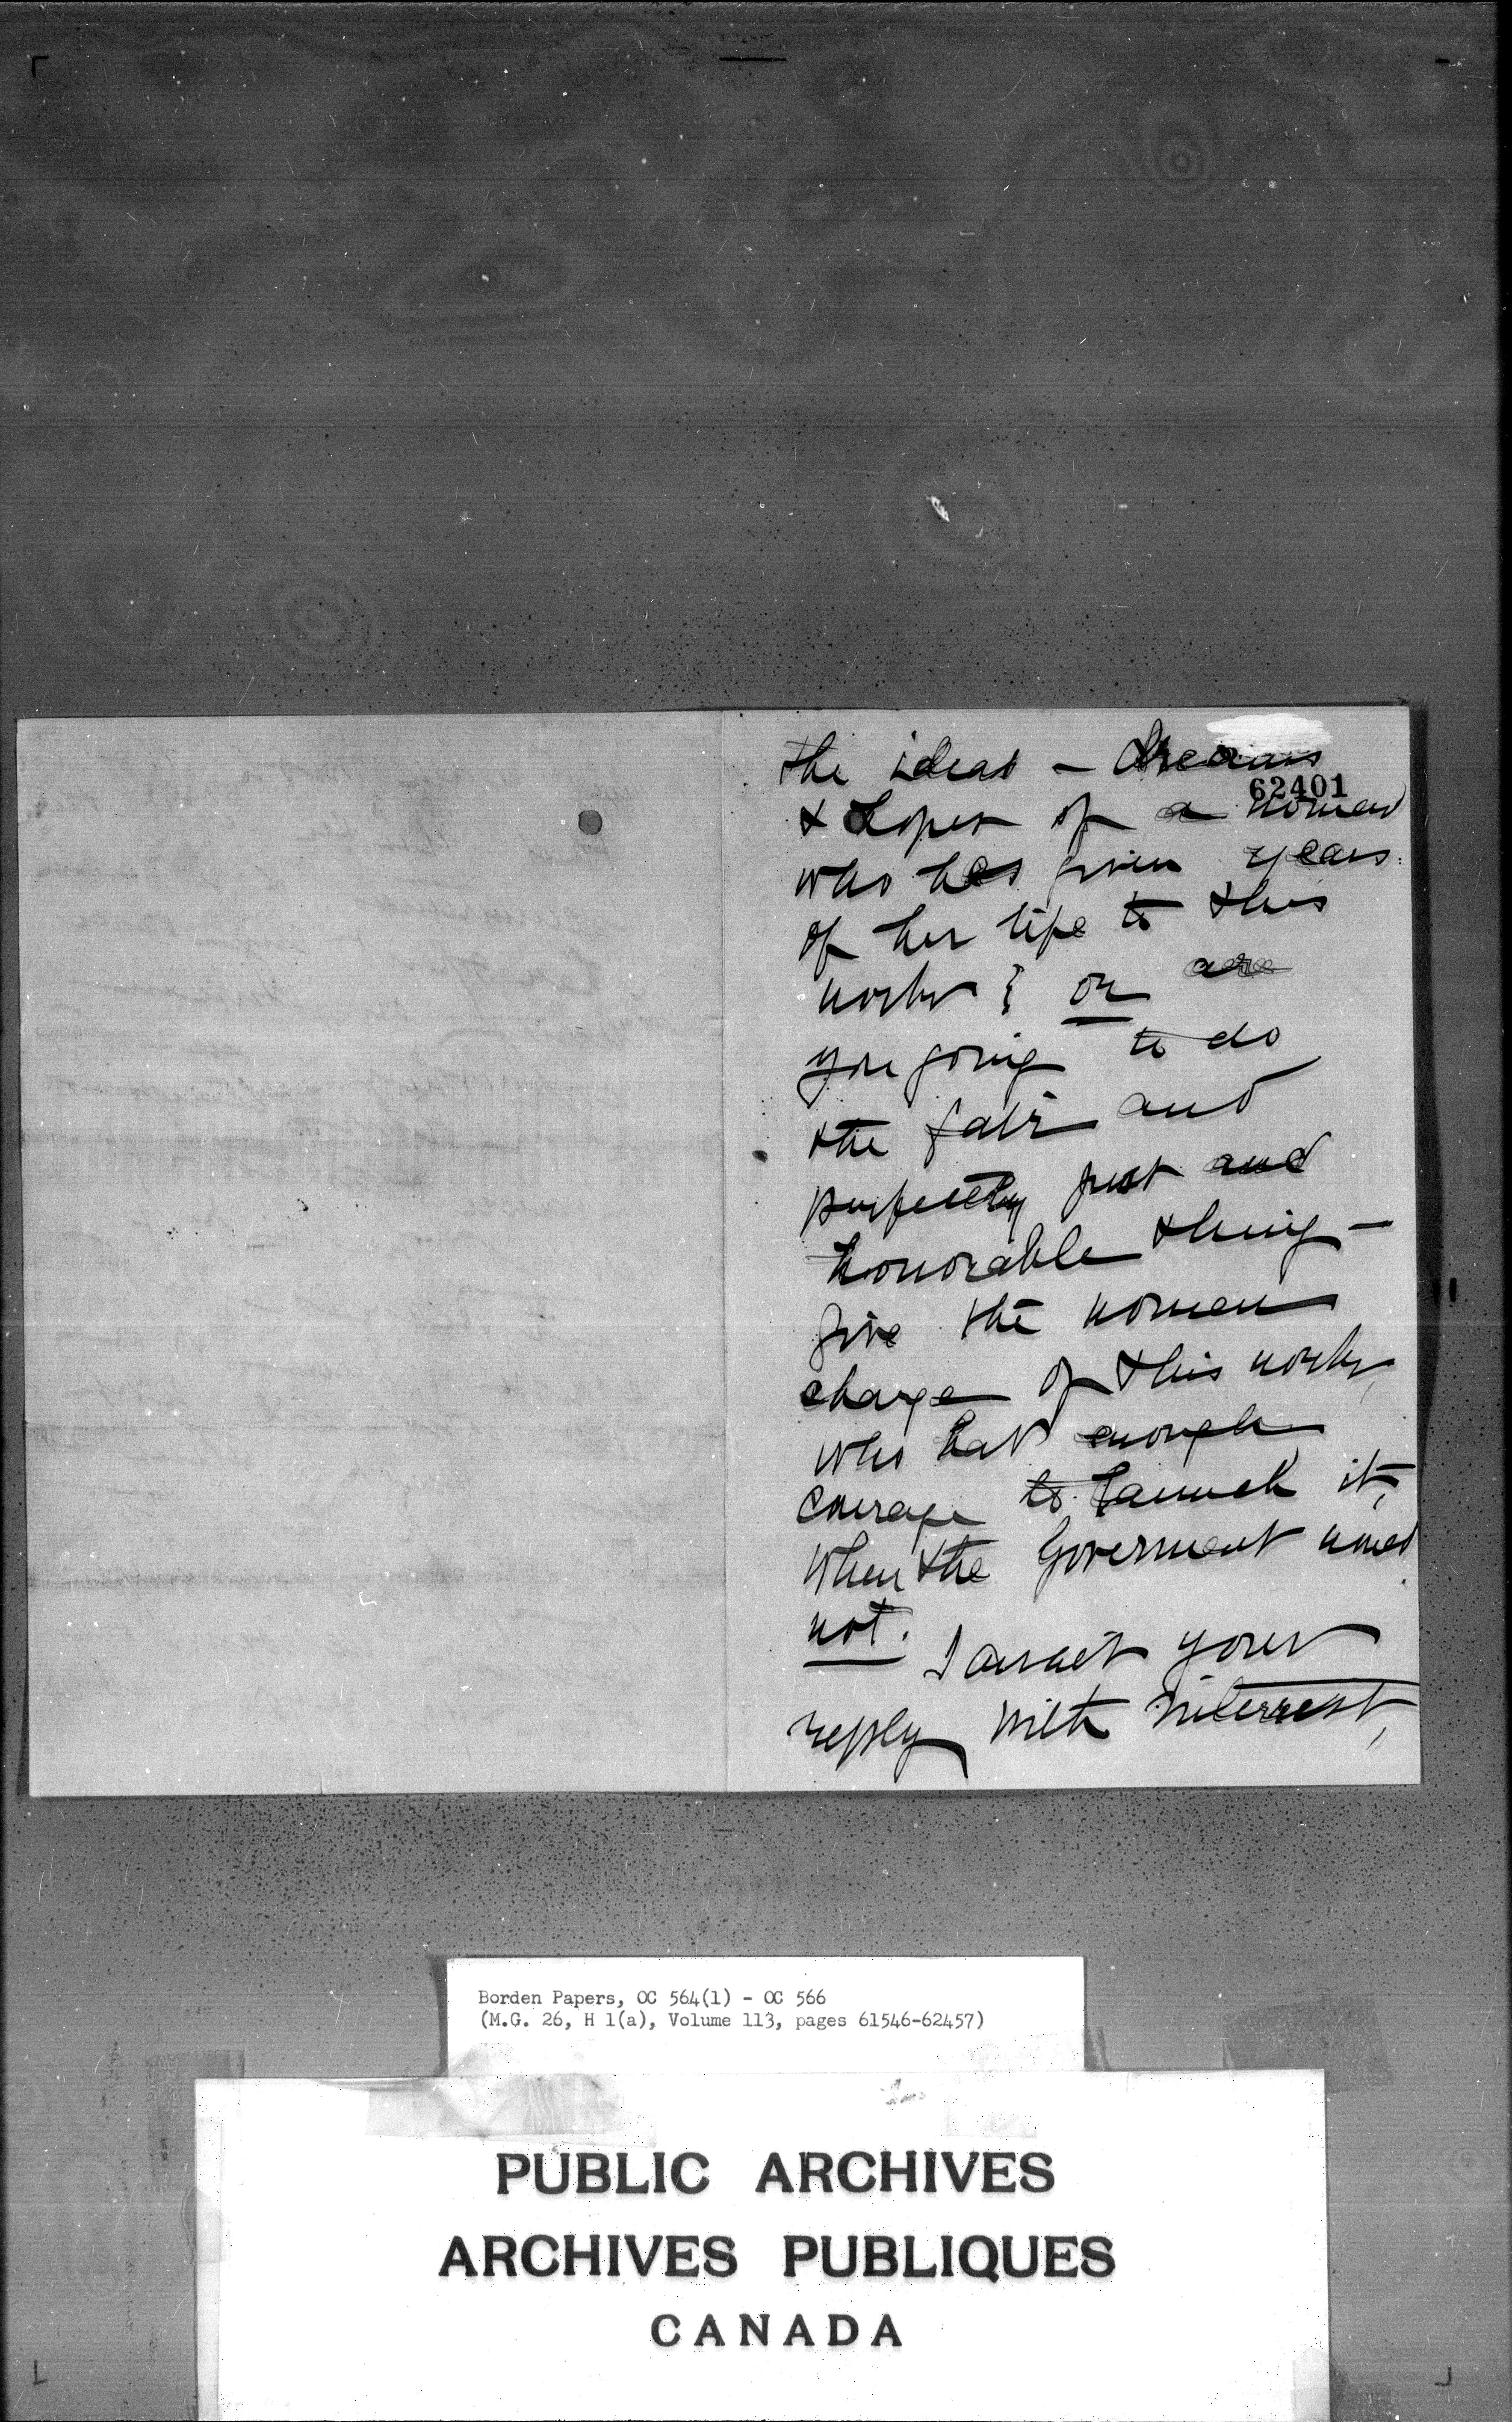 the ideas - dreams
62401
& hopes of a woman
who has given years
of her life to this
work ; or are
you going to do
the fair and
perfectly just and
honorable thing -
give the women
charge of this work,
who had enough
courage to launch it,
When the Goverment
not.
I await your
reply with interrest,
Borden Papers, OC 564(1) - OC 566
(M.G. 26, H 1(a), Volume 113, pages 61546-62457)
PUBLIC ARCHIVES
ARCHIVES PUBLIQUES
CANADA